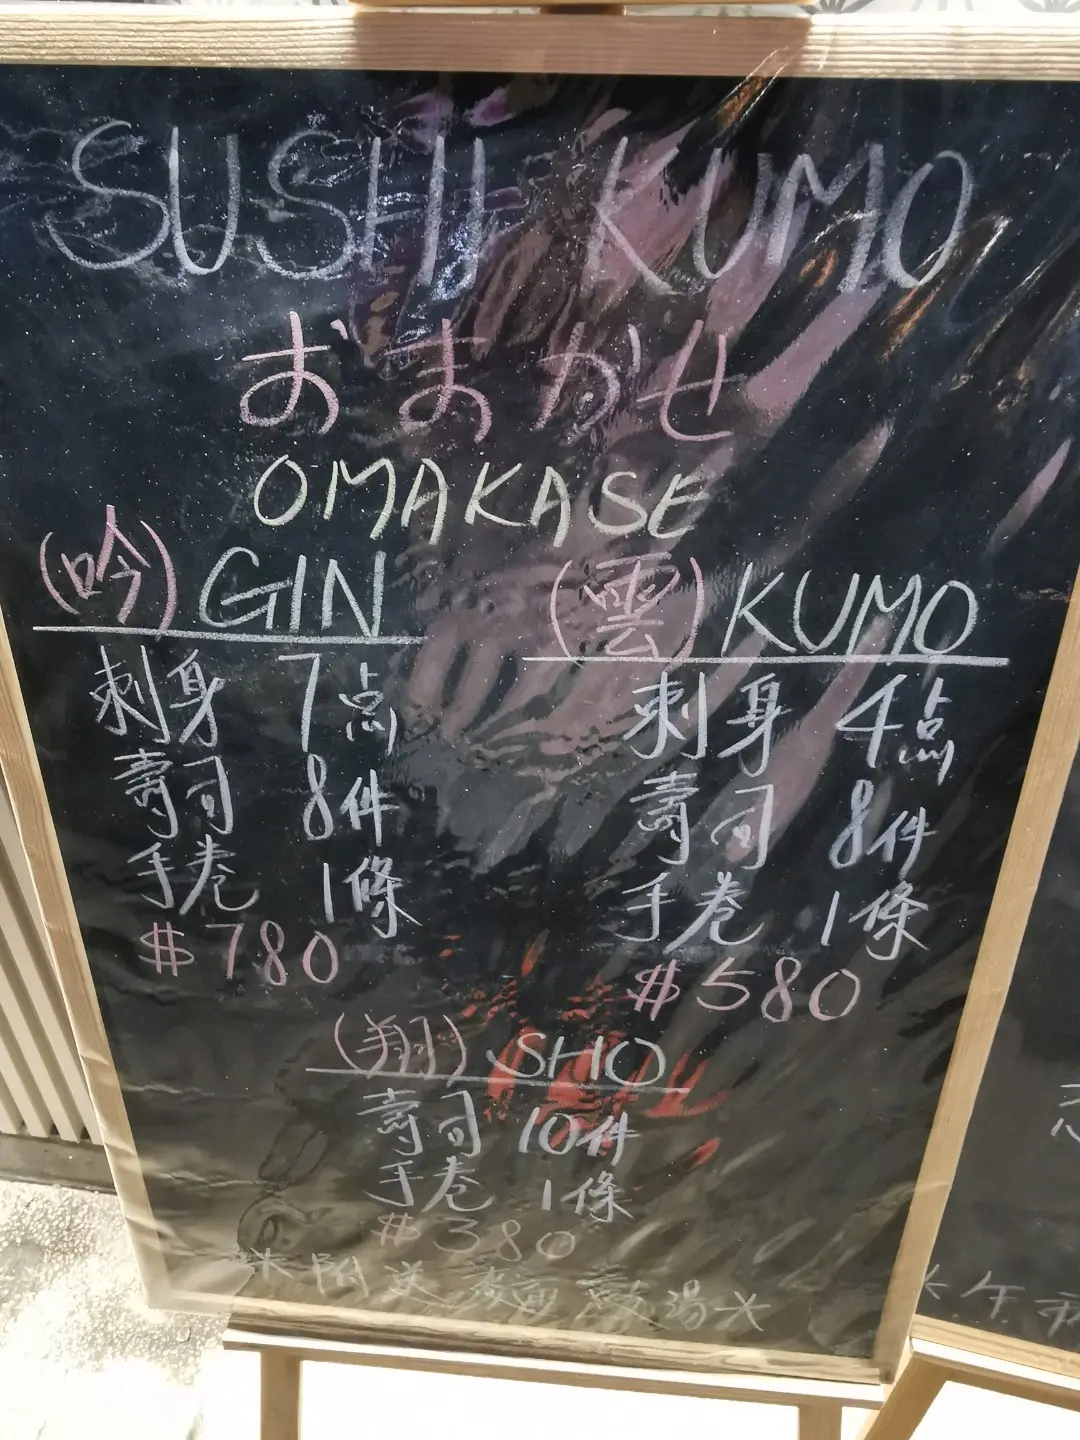 SUSHI KUMO
おまかせ
OMAKASE
(吟) GIN
刺身 7点
壽司 8件
手卷 1條
$780
(雲) KUMO
刺身 4点
壽司 8件
手卷 1條
$580
(翔) SHO
壽司 10件
手卷 1條
$380
*附送 麵豉湯*